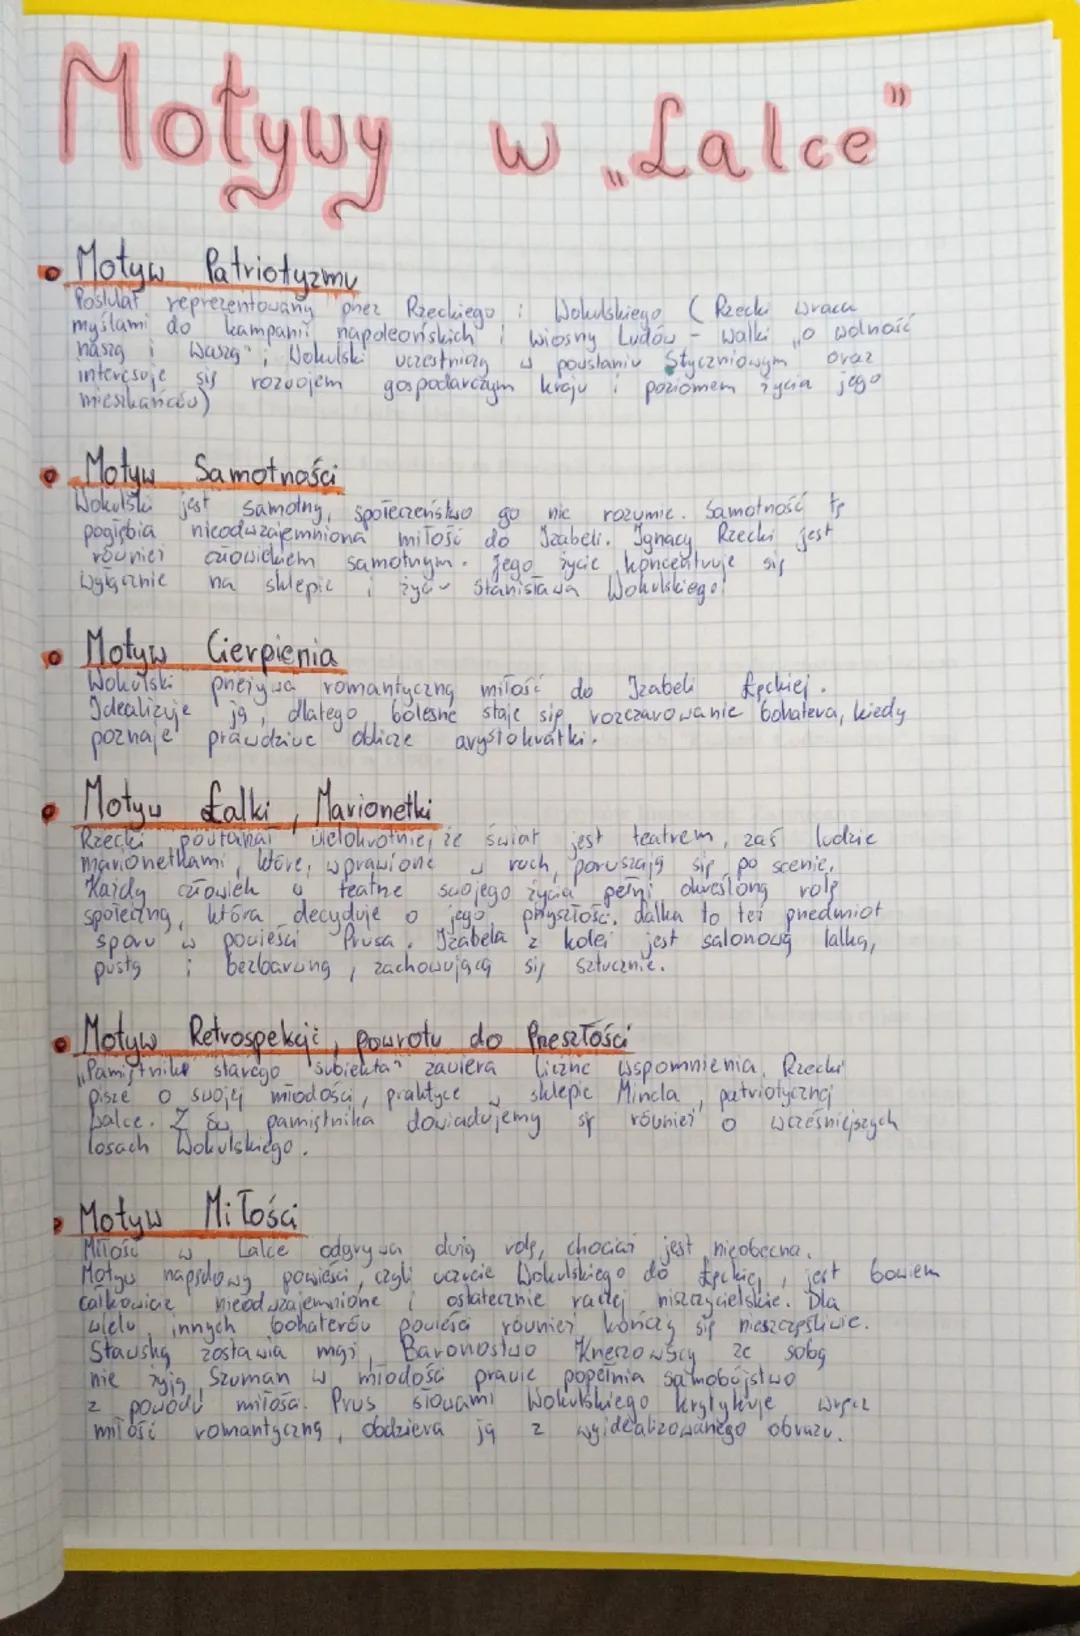 Motywy w „Lalce"
Motyw Patriotyzmu
Postulat reprezentowany przez Rzeckiego i Wokulskiego (Rzecki wraca
myślami do kampanii napoleońskich i wiosny Ludów - walki „o wolność
naszą i Waszą"; Wokulski uczestniczą w powstaniu Styczniowym oraz
interesuje się rozwojem gospodarczym kraju i poziomem życia jego
mieszkańców)
Motyw Samotności
Wokulski jest samotny, społeczeństwo go nie rozumie. Samotność tę
pogłębia nieodwzajemniona miłość do Izabeli. Ignacy Rzecki jest
również człowiekiem samotnym. Jego życie koncentruje się
wyłącznie na sklepie i życiu Stanisława Wokulskiego.
Motyw Cierpienia
Wokulski przeżywa romantyczną miłość do Izabeli Łęckiej.
Idealizuje ją, dlatego bolesne staje się rozczarowanie bohatera, kiedy
poznaje prawdziwe oblicze arystokratki.
Motyw Lalki, Marionetki
Rzecki powtarzał wielokrotnie, że świat jest teatrem, zaś ludzie
marionetkami, które, wprawione w ruch, poruszają się po scenie.
Każdy człowiek w teatrze swojego życia pełni określoną rolę
społeczną, która decyduje o jego przyszłości. Lalka to też przedmiot
sporu w powieści Prusa. Izabela z kolei jest salonową lalką,
pustą i bezbarwną, zachowującą się sztucznie.
Motyw Retrospekcji, powrotu do Przeszłości
„Pamiętnik starego subiekta" zawiera liczne wspomnienia. Rzecki
pisze o swojej młodości, praktyce w sklepie Mincla, patriotycznej
walce. Z ów pamiętnika dowiadujemy się również o wcześniejszych
losach Wokulskiego.
Motyw Miłości
Miłość w Lalce odgrywa dużą rolę, chociaż jest nieobecna.
Motyw napędowy powieści, czyli uczucie Wokulskiego do Łęckiej, jest bowiem
całkowicie nieodwzajemnione i ostatecznie raczej niszczycielskie. Dla
wielu innych bohaterów powieści również kończy się nieszczęśliwie.
Stawską zostawia mąż, Baronostwo Krzeszowscy ze sobą
nie żyją, Szuman w młodości prawie popełnia samobójstwo
z powodu miłości. Prus słowami Wokulskiego krytykuje wręcz
miłość romantyczną, obdziera ją z wyidealizowanego obrazu.